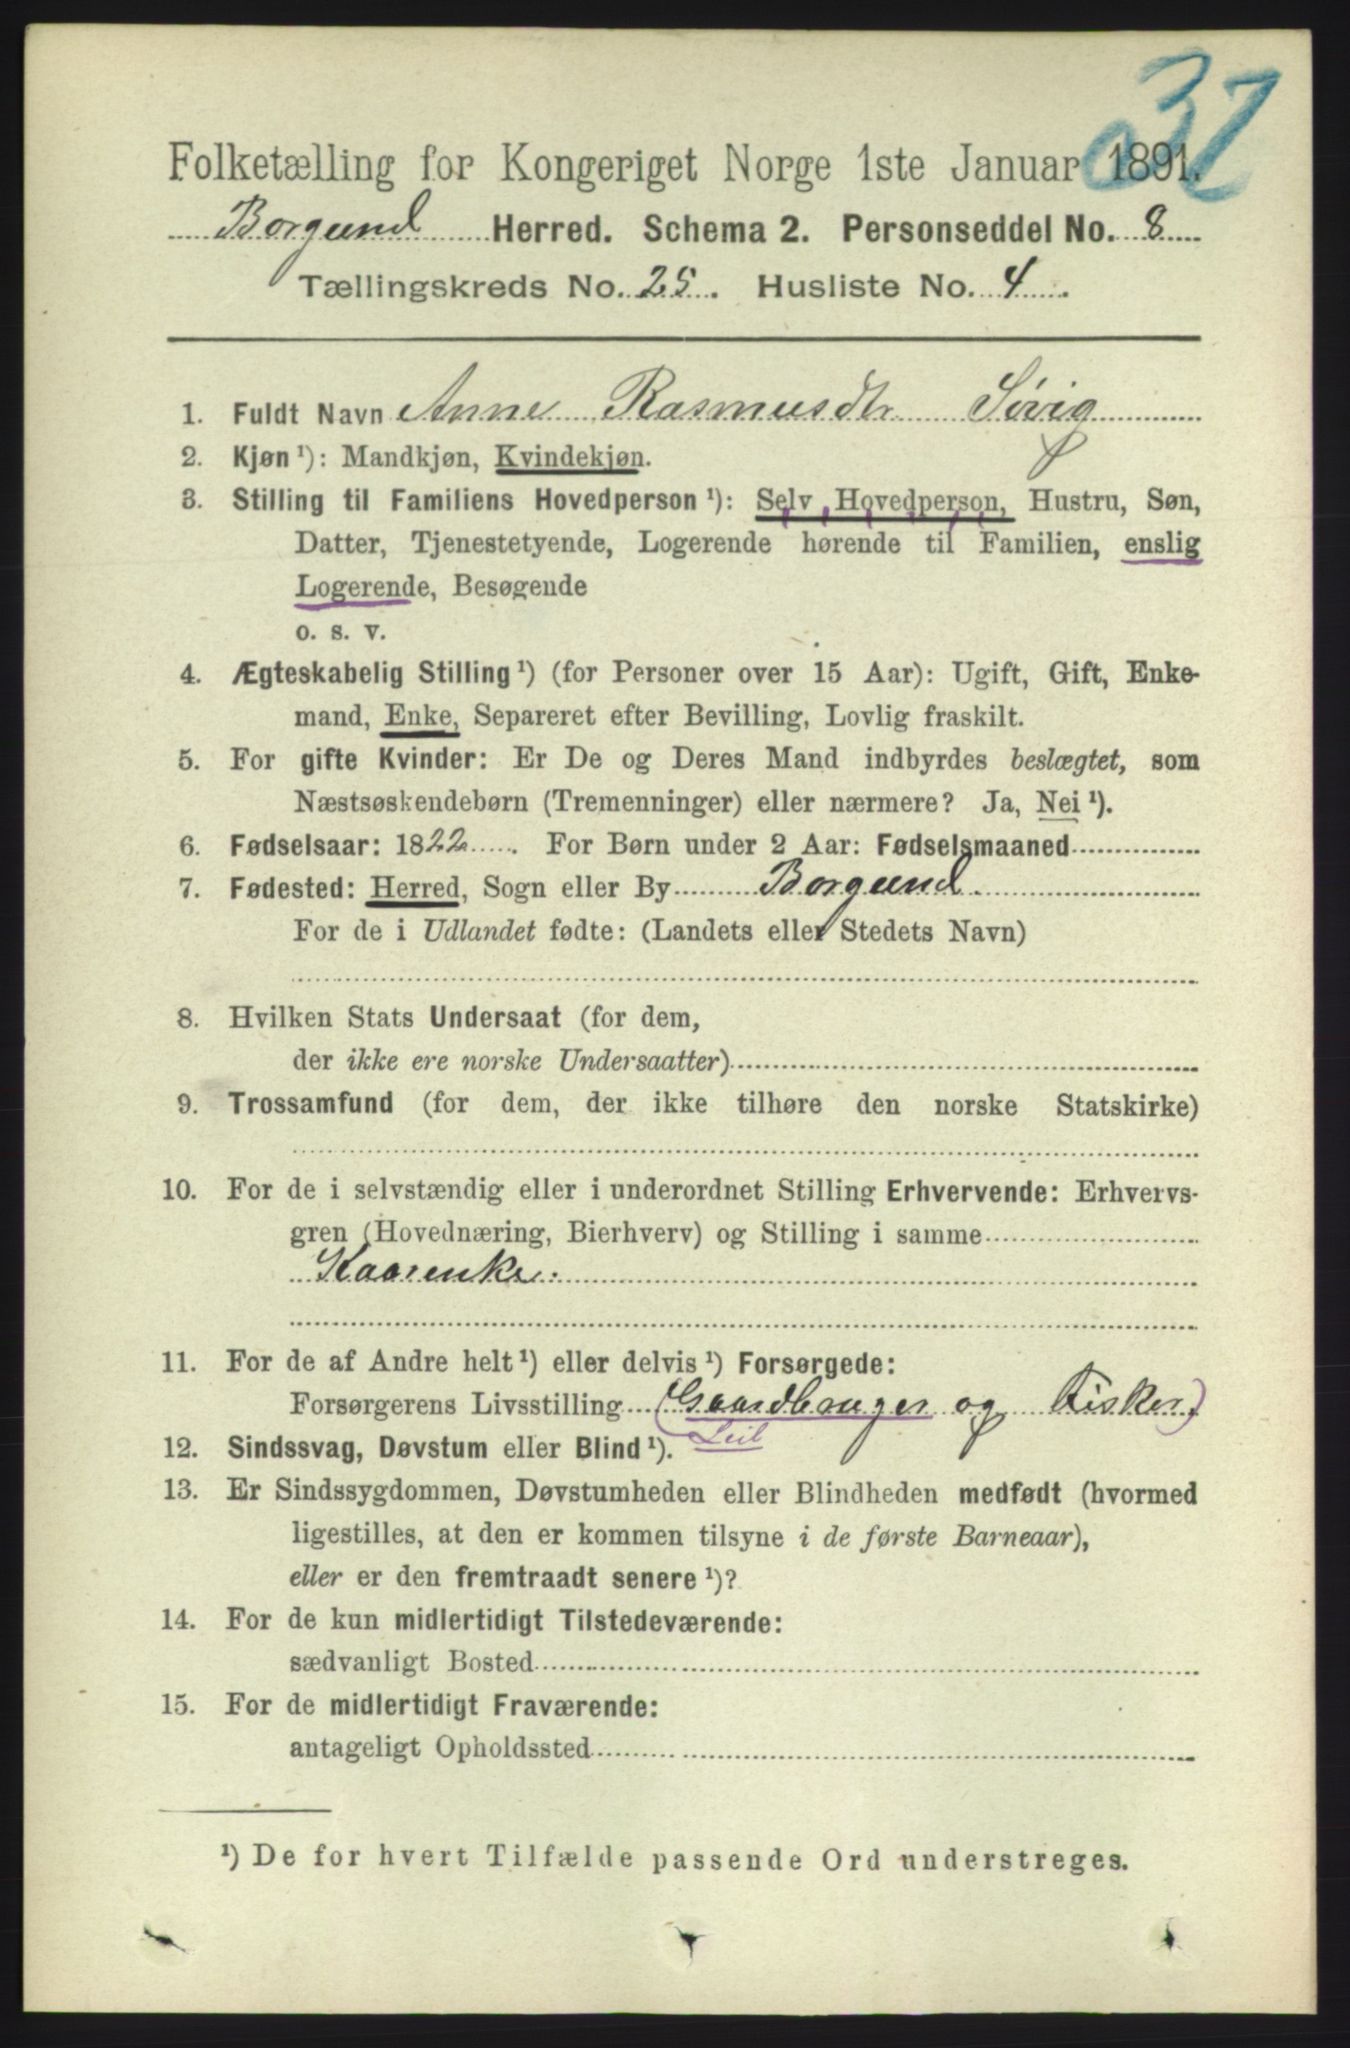 37
Folketælling for Kongeriget Norge 1ste Januar 1891.
Borgund Herred. Schema 2. Personseddel No. 8
Tællingskreds No. 25. Husliste No. 4.
1. Fuldt Navn Anne Rasmusdtr Sørig
2. Kjøn¹): Mandkjøn, Kvindekjøn.
3. Stilling til Familiens Hovedperson¹): Selv Hovedperson, Hustru, Søn,
Datter, Tjenestetyende, Logerende hørende til Familien, enslig
Logerende, Besøgende
o. s. v.
4. Ægteskabelig Stilling¹) (for Personer over 15 Aar): Ugift, Gift, Enke-
mand, Enke, Separeret efter Bevilling, Lovlig fraskilt.
5. For gifte Kvinder: Er De og Deres Mand indbyrdes beslægtet, som
Næstsøskendebørn (Tremenninger) eller nærmere? Ja, Nei¹).
6. Fødselsaar: 1822. For Børn under 2 Aar: Fødselsmaaned
7. Fødested: Herred, Sogn eller By Borgund.
For de i Udlandet fødte: (Landets eller Stedets Navn)
8. Hvilken Stats Undersaat (for dem,
der ikke ere norske Undersaatter)
9. Trossamfund (for dem, der ikke tilhøre den norske Statskirke)
10. For de i selvstændig eller i underordnet Stilling Erhvervende: Erhvervs-
gren (Hovednæring, Bierhverv) og Stilling i samme
Kaarenke.
11. For de af Andre helt¹) eller delvis¹) Forsørgede:
Forsørgerens Livsstilling (Gaardbruger og Fisker.)
Leil
12. Sindssvag, Døvstum eller Blind¹).
13. Er Sindssygdommen, Døvstumheden eller Blindheden medfødt (hvormed
ligestilles, at den er kommen tilsyne i de første Barneaar),
eller er den fremtraadt senere¹)?
14. For de kun midlertidigt Tilstedeværende:
sædvanligt Bosted
15. For de midlertidigt Fraværende:
antageligt Opholdssted
¹) De for hvert Tilfælde passende Ord understreges.